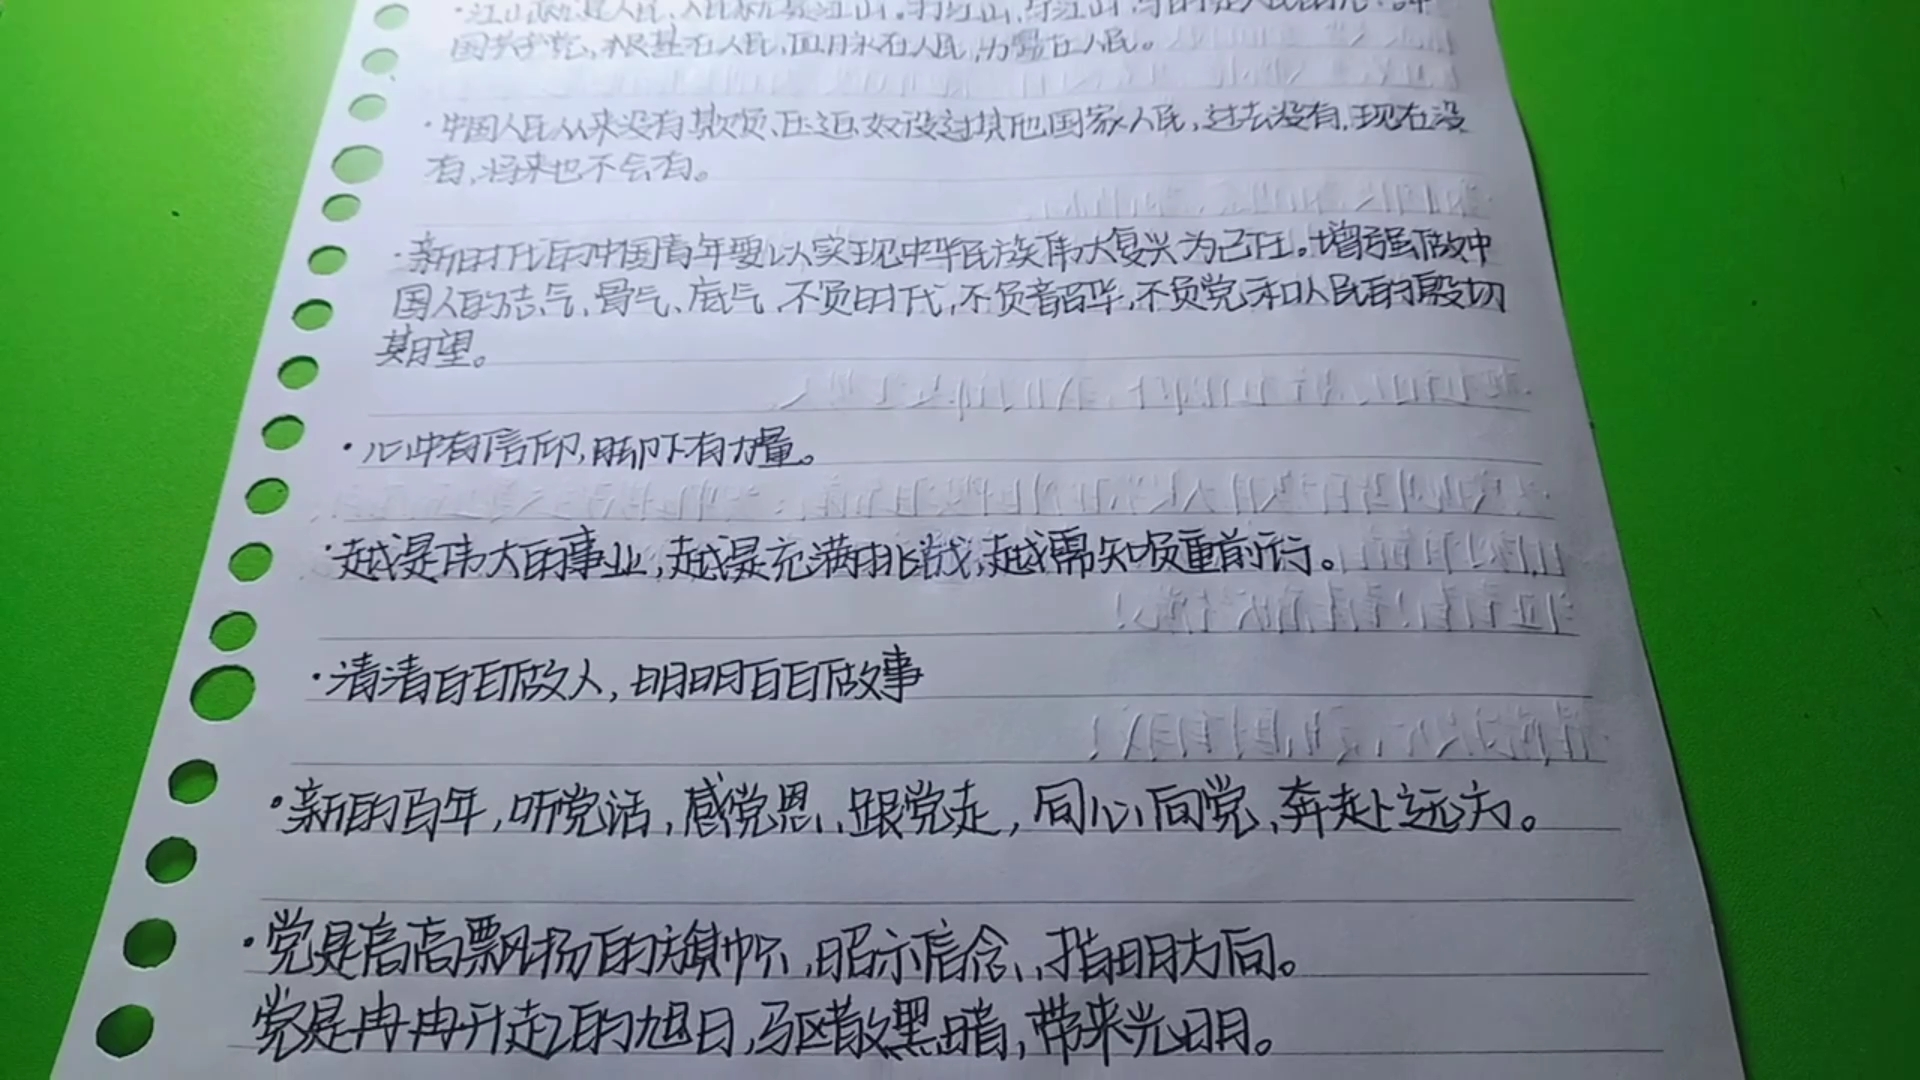 ·江山就是人民、人民就是江山。打江山、守江山，守的是人民的心。中
国共产党，根基在人民，血脉在人民，力量在人民。
·中国人民从来没有欺负、压迫、奴役过其他国家人民，过去没有，现在没
有，将来也不会有。
·新时代的中国青年要以实现中华民族伟大复兴为己任。增强做中
国人的志气、骨气、底气，不负时代，不负韶华，不负党和人民的殷切
期望。
·心中有信仰，脚下有力量。
·越是伟大的事业，越是充满挑战，越需知重负重前行。
·清清白白做人，明明白白做事
·新的百年，听党话，感党恩、跟党走，同心向党、奔赴远方。
·党是高高飘扬的旗帜，昭示信念、指明方向。
党是冉冉升起的旭日，驱散黑暗，带来光明。